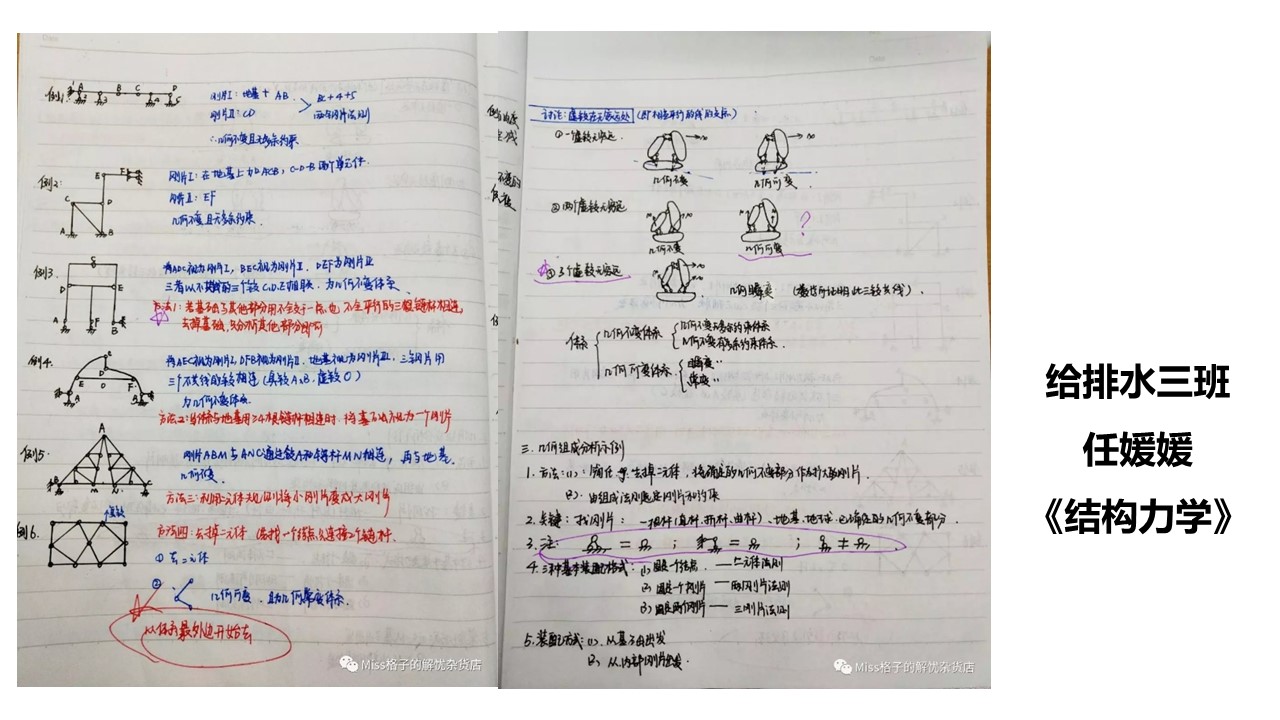 例1.
刚片I：地基＋AB
刚片II：CD
BC＋4＋5
两刚片法则
∴几何不变且无多余约束
例2.
刚片I：在地基上加DACB，C-D-B两个单元体.
刚片II：EF
几何不变且无多余约束.
例3.
将ADC视为刚片I，BEC视为刚片II，DEF为刚片III
三者以不共线的三个铰C.D.E相联，为几何不变体系
方法1：若基础与其他部分用不全交于一点也不全平行的三根链杆相连
去掉基础，只分析其他部分即可
例4.
将AEC视为刚片I，DFB视为刚片II，地基视为刚片III，三刚片用
三个不共线的铰相连（实铰A.B，虚铰O）
为几何不变体系
方法2：当体系与地基用≥4根链杆相连时，将基础视为一个刚片
例5.
刚片ABM与ANC通过铰A和链杆MN相连，再与地基.
几何不变.
方法三：利用二元体规则将小刚片变成大刚片
例6.
方法四：去掉二元体（先找一个结点只连接二个链杆.
① 去二元体
②
几何可变，且为几何常变体系.
从体系最外边开始去
讨论：虚铰在无穷远处（即相互平行的线的交点）
①一个虚铰无穷远.
几何不变
几何可变
②两个虚铰无穷远
几何不变
几何可变
?
③3个虚铰无穷远
几何瞬变
体系
几何不变体系
几何不变无多余约束体系
几何不变有多余约束体系.
几何可变体系.
瞬变〃
常变〃
三.几何组成分析示例
1. 方法：(1)：简化：去掉二元体，将确定的几何不变部分作为大刚片.
(2)：由组成法则确定刚片和约束
2. 关键：找刚片：一根杆(直杆.折杆.曲杆)、地基.地球.已确定的几何不变部分.
3. 注：
4. 三种基本装配格式：(1) 固定一个结点.——二元体法则
(2) 固定一个刚片——两刚片法则
(3) 固定两个刚片——三刚片法则
5. 装配方式：(1). 从基础出发
(2) 从内部刚片出发.
Miss格子的解忧杂货店
Miss格子的解忧杂货店
给排水三班
任媛媛
《结构力学》